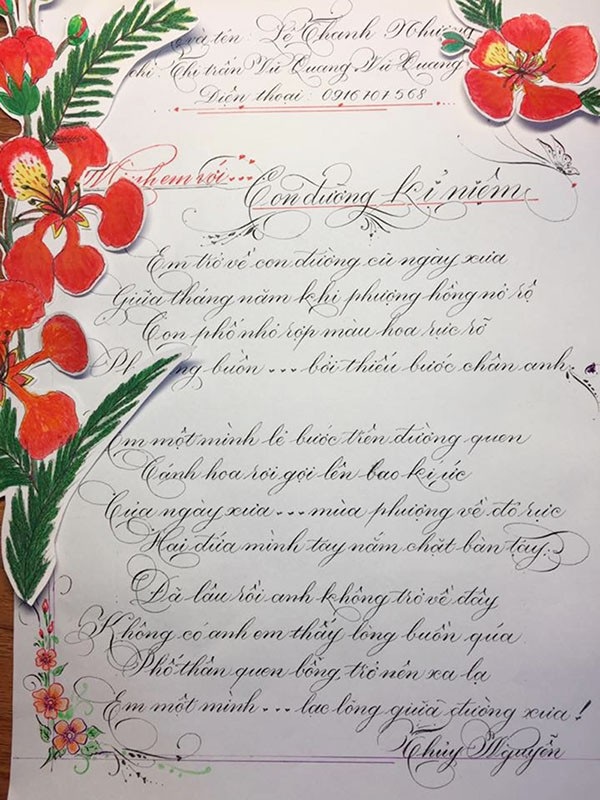 và tên: Lê Thanh Nhường
chỉ: Thị trấn Vũ Quang, Vũ Quang
Điện thoại: 0916101568
Mình em với...
Con đường kỉ niệm
Em trở về con đường cũ ngày xưa
Giữa tháng năm khi phượng hồng nở rộ
Con phố nhỏ rợp màu hoa rực rỡ
buồn ... bởi thiếu bước chân anh.
Em một mình lẻ bước trên đường quen
Cánh hoa rơi gợi lên bao kí ức
Của ngày xưa ... mùa phượng về đỏ rực
Hai đứa mình tay nắm chặt bàn tay.
Đã lâu rồi anh không trở về đây
Không có anh em thấy lòng buồn qúa
Phố thân quen bỗng trở nên xa lạ
Em một mình ... lạc lõng giữa đường xưa!
Thủy Nguyễn